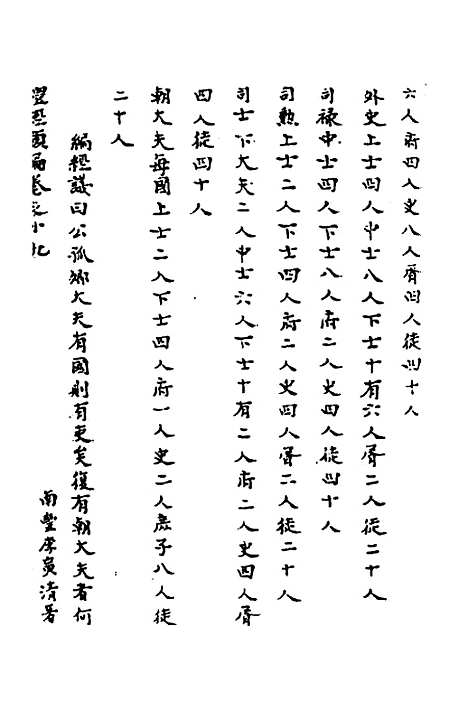 六人府四人史八人胥四人徒四十人
外史上士四人中士八人下士十有六人胥二人徒二十人
司祿中士四人下士八人府二人史四人徒四十人
司勲上士二人下士四人府二人史四人胥二人徒二十人
司士下大夫二人中士六人下士十有二人府二人史四人胥
四人徒四十人
朝大夫每國上士二人下士四人府一人史二人庶子八人徒
二十人
編經議曰公孤鄉大夫有國則有吏矣復有朝大夫者何
豐李寅清署
南
卷之十九